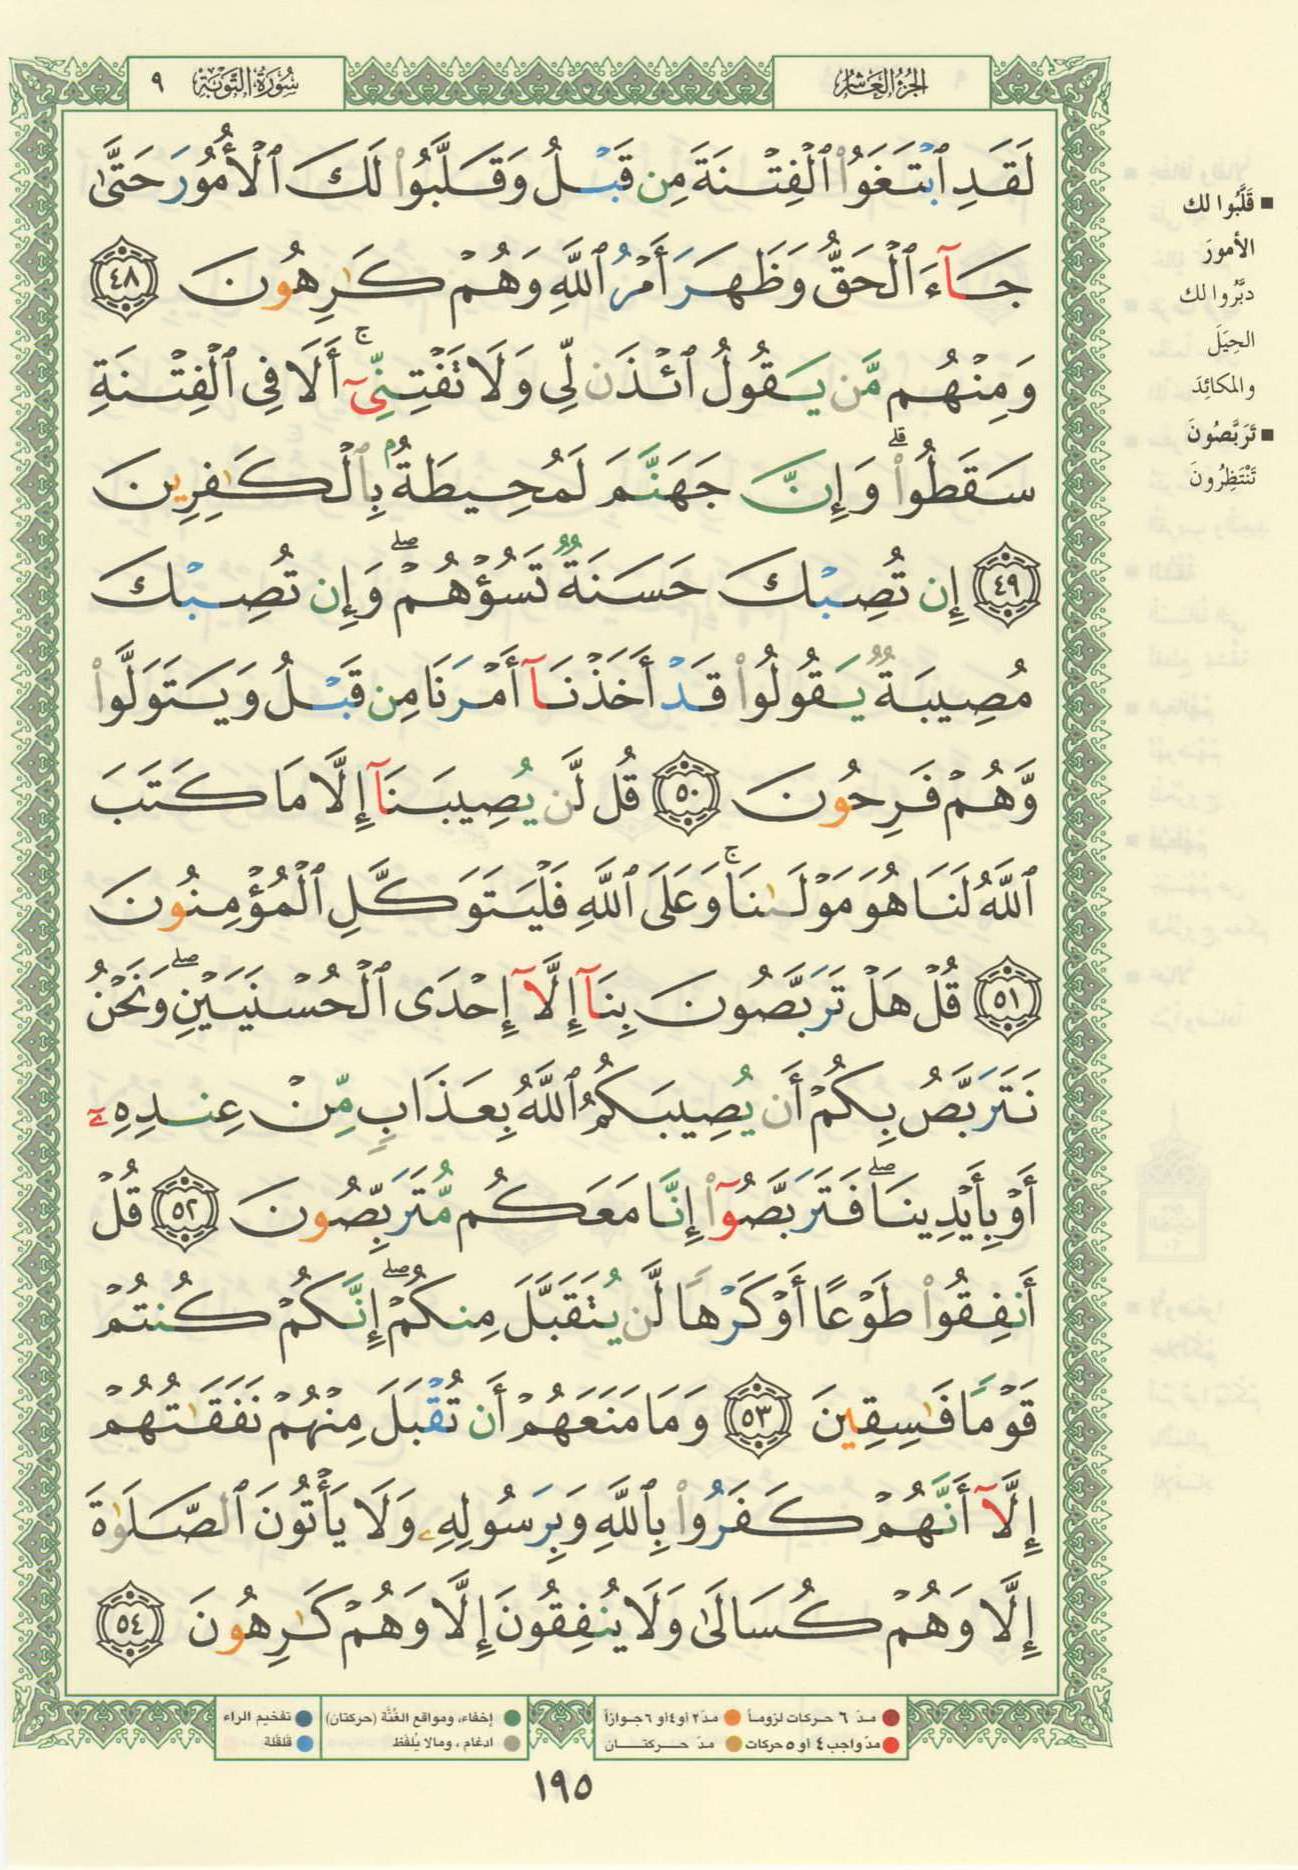 الجزء العاشر
سُورَةُ التَّوبَة ٩
لَقَدِ ٱبْتَغَوُا۟ ٱلْفِتْنَةَ مِن قَبْلُ وَقَلَّبُوا۟ لَكَ ٱلْأُمُورَ حَتَّىٰ
جَآءَ ٱلْحَقُّ وَظَهَرَ أَمْرُ ٱللَّهِ وَهُمْ كَٰرِهُونَ ٤٨
وَمِنْهُم مَّن يَقُولُ ٱئْذَن لِّى وَلَا تَفْتِنِّىٓ ۚ أَلَا فِى ٱلْفِتْنَةِ
سَقَطُوا۟ ۗ وَإِنَّ جَهَنَّمَ لَمُحِيطَةٌۢ بِٱلْكَٰفِرِينَ
٤٩ إِن تُصِبْكَ حَسَنَةٌ تَسُؤْهُمْ ۖ وَإِن تُصِبْكَ
مُصِيبَةٌ يَقُولُوا۟ قَدْ أَخَذْنَآ أَمْرَنَا مِن قَبْلُ وَيَتَوَلَّوا۟
وَّهُمْ فَرِحُونَ ٥٠ قُل لَّن يُصِيبَنَآ إِلَّا مَا كَتَبَ
ٱللَّهُ لَنَا هُوَ مَوْلَىٰنَا ۚ وَعَلَى ٱللَّهِ فَلْيَتَوَكَّلِ ٱلْمُؤْمِنُونَ
٥١ قُلْ هَلْ تَرَبَّصُونَ بِنَآ إِلَّآ إِحْدَى ٱلْحُسْنَيَيْنِ ۖ وَنَحْنُ
نَتَرَبَّصُ بِكُمْ أَن يُصِيبَكُمُ ٱللَّهُ بِعَذَابٍ مِّنْ عِندِهِۦٓ
أَوْ بِأَيْدِينَا ۖ فَتَرَبَّصُوٓا۟ إِنَّا مَعَكُم مُّتَرَبِّصُونَ ٥٢ قُلْ
أَنفِقُوا۟ طَوْعًا أَوْ كَرْهًا لَّن يُتَقَبَّلَ مِنكُمْ ۖ إِنَّكُمْ كُنتُمْ
قَوْمًا فَٰسِقِينَ ٥٣ وَمَا مَنَعَهُمْ أَن تُقْبَلَ مِنْهُمْ نَفَقَٰتُهُمْ
إِلَّآ أَنَّهُمْ كَفَرُوا۟ بِٱللَّهِ وَبِرَسُولِهِۦ وَلَا يَأْتُونَ ٱلصَّلَوٰةَ
إِلَّا وَهُمْ كُسَالَىٰ وَلَا يُنفِقُونَ إِلَّا وَهُمْ كَٰرِهُونَ ٥٤
■ قَلَّبُوا لك
الأمورَ
دبَّرُوا لك
الحِيَلَ
والمكائِدَ
■ تَرَبَّصُونَ
تَنْتَظِرُونَ
مدّ ٦ حركات لزوماً
مدّ ٢ أو ٤ أو ٦ جوازاً
إخفاء، ومواقع الغُنَّة (حركتان)
تفخيم الراء
مدّ واجب ٤ أو ٥ حركات
مدّ حركتـــان
ادغام ، ومالا يُلفظ
قلقلة
١٩٥